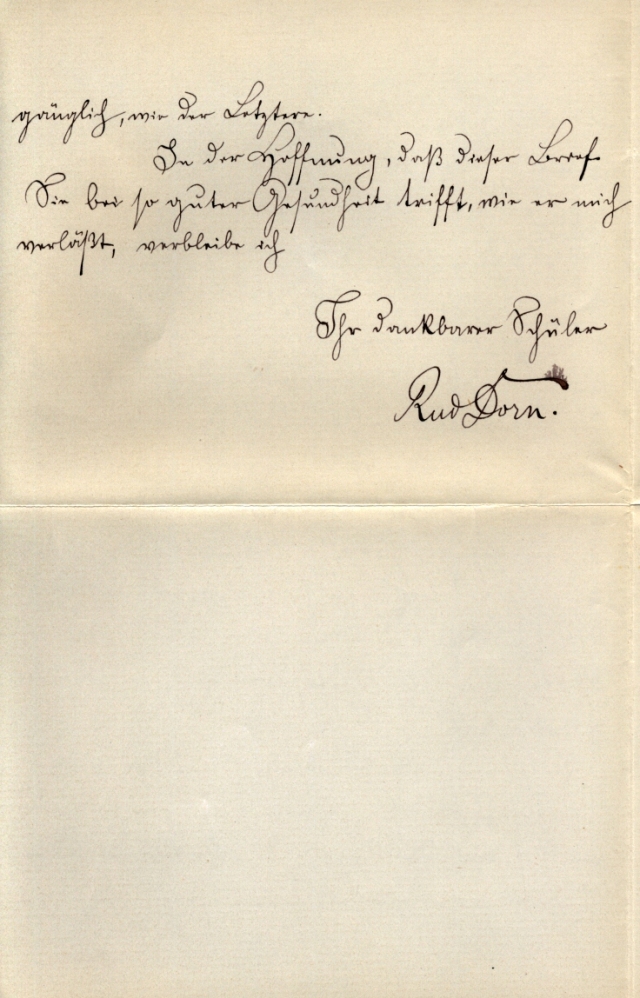 gänglich, wie der Letztere.
In der Hoffnung, daß dieser Brief
Sie bei so guter Gesundheit trifft, wie er mich
verläßt, verbleibe ich
Ihr dankbarer Schüler
Rud Dorn.